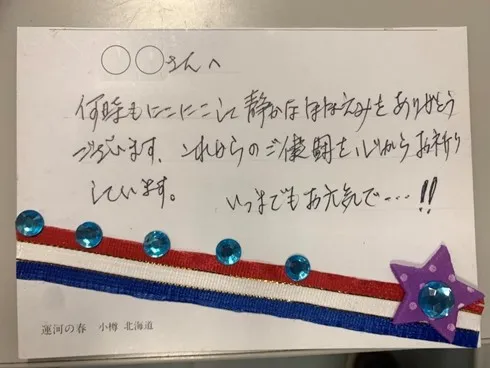 ○○さんへ
何時もにこにこして静かなほほえみをありがとう
ございます。これからのご健闘を心からお祈り
しています。 いつまでもお元気で…!!
運河の春 小樽 北海道